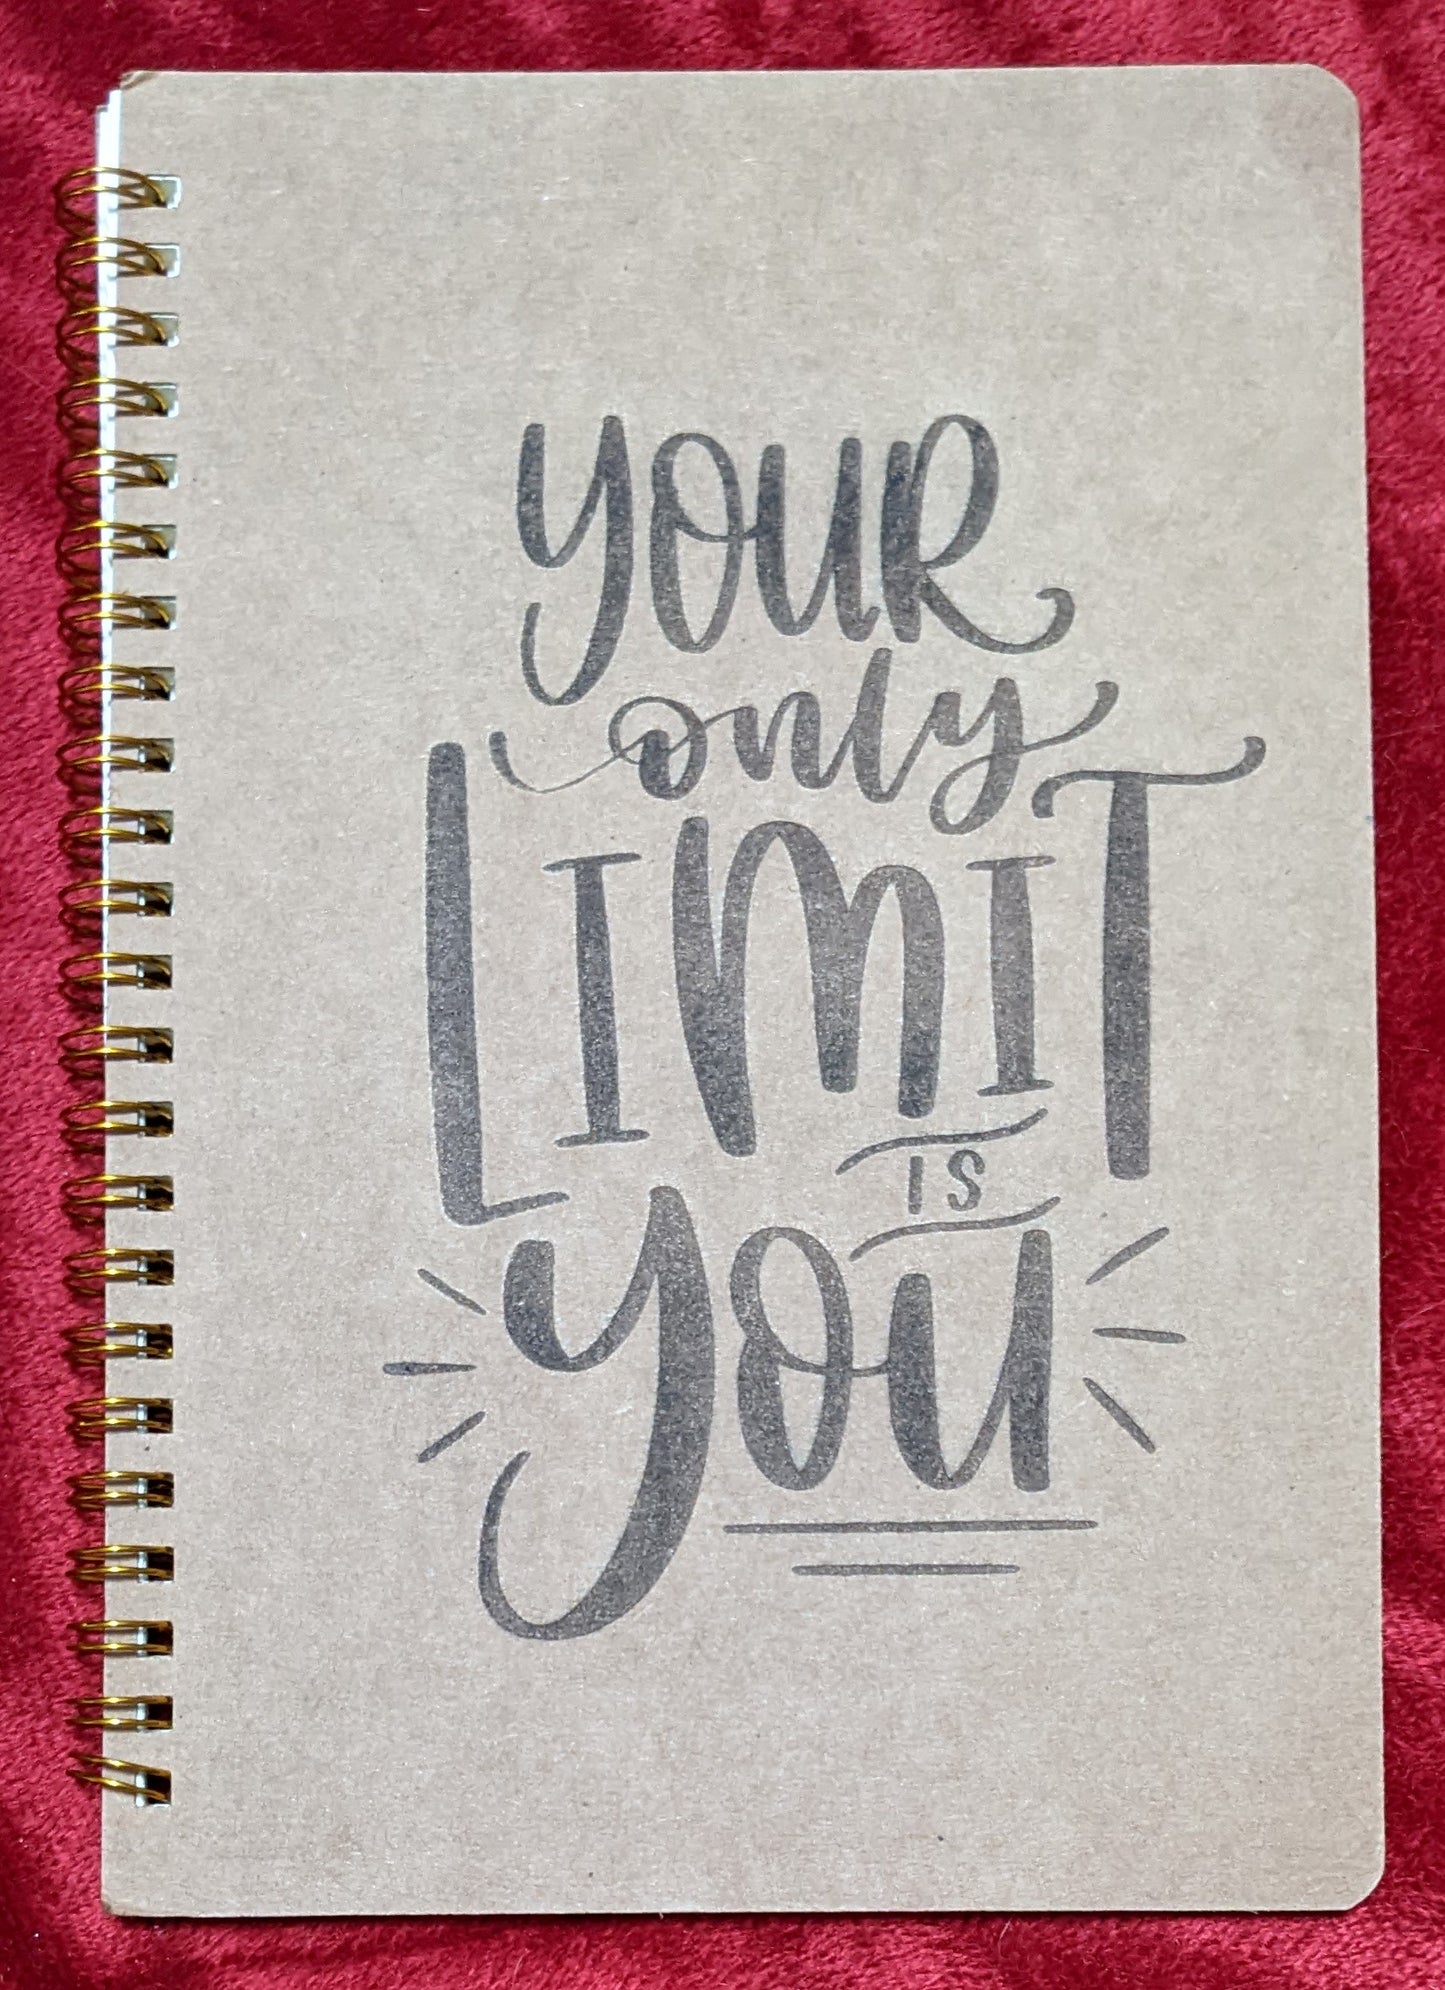 YOUR
only
LIMIT
IS
you